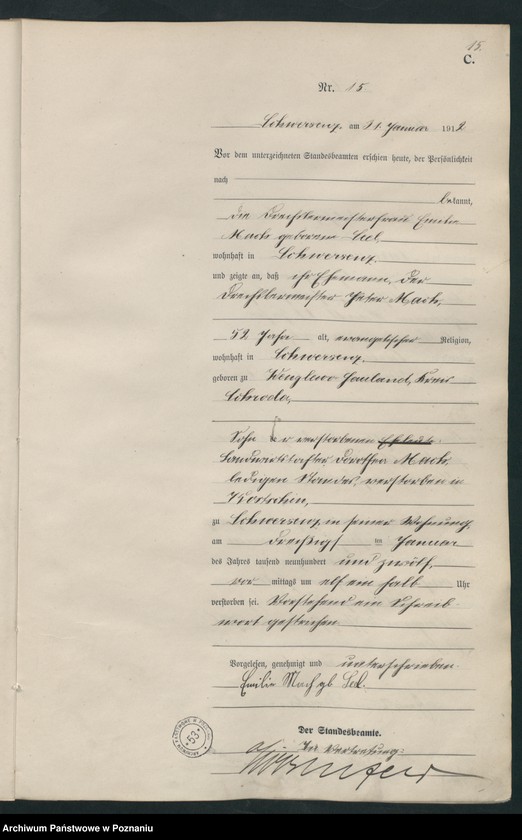 15.
C.
Nr. 15
Schwersenz, am 31. Januar 1912
Vor dem unterzeichneten Standesbeamten erschien heute, der Persönlichkeit
nach
bekannt,
die Drechslermeisterfrau Emilie
Mach geborene Seel,
wohnhaft in Schwersenz,
und zeigte an, daß ihr Ehemann, der
Drechslermeister Peter Mach,
52 Jahr alt, evangelischer Religion,
wohnhaft in Schwersenz,
geboren zu Hauland, Kreis
Schroda,
Sohn der verstorbenen Eheleute
Landwirtstochter Dorothea Mach,
ledigen Standes, verstorben in
Kostschin,
zu Schwersenz, in seiner Wohnung,
am dreißigsten Januar
des Jahres tausend neunhundert und zwölf,
vor mittags um elf ein halb Uhr
verstorben sei. Vorstehend ein Schreib-
wort gestrichen.
Vorgelesen, genehmigt und unterschrieben.
Emilie Mach gb. Seel.
Der Standesbeamte.
In Vertretung:
ARCHIWUM PAŃSTWOWE W POZNANIU
53
Archiwum Państwowe w Poznaniu